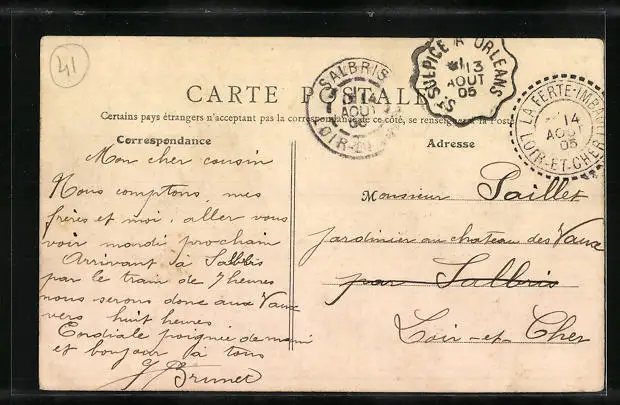 41
SALBRIS
14
AOUT
05
LOIR-ET-CHER
ST SULPICE A ORLEANS
13
AOUT
05
LA FERTE-IMBAULT
14
AOUT
05
LOIR-ET-CHER
CARTE POSTALE
Certains pays étrangers n'acceptant pas la correspondance de ce côté, se renseigner à la Poste
Correspondance
Mon cher cousin
Nous comptons, mes
frères et moi, aller vous
voir mardi prochain
Arrivant à Salbris
par le train de 7 heures
nous serons donc aux Vaux
vers huit heures.
Cordiale poignée de main
et bonjour à tous
J Brunet
Adresse
Monsieur Paillet
jardinier au chateau des Vaux
par Salbris
Loir-et-Cher